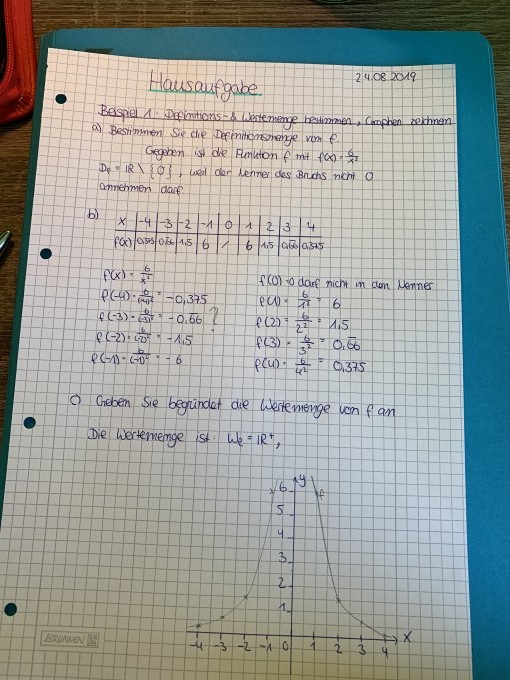 Hausaufgabe
24.08.2019
Beispiel 1: Definitions- & Wertemenge bestimmen, Graphen zeichnen
a) Bestimmen Sie die Definitionsmenge von f.
Gegeben ist die Funktion f mit f(x) = 6/x²
Df = ℝ \ {0}, weil der Nenner des Bruchs nicht 0
annehmen darf
b)
x | -4 | -3 | -2 | -1 | 0 | 1 | 2 | 3 | 4
f(x) | 0,375 | 0,66 | 1,5 | 6 | / | 6 | 1,5 | 0,66 | 0,375
f(x) = 6/x²
f(-4) = 6/(-4)² = -0,375
f(-3) = 6/(-3)² = -0,66 ?
f(-2) = 6/(-2)² = -1,5
f(-1) = 6/(-1)² = -6
f(0) → darf nicht in den Nenner
f(1) = 6/1² = 6
f(2) = 6/2² = 1,5
f(3) = 6/3² = 0,66
f(4) = 6/4² = 0,375
c) Geben Sie begründet die Wertemenge von f an
Die Wertemenge ist: Wf = ℝ⁺,
y
f
6
5
4
3
2
1
-4 -3 -2 -1 0 1 2 3 4 x
BRUNNEN